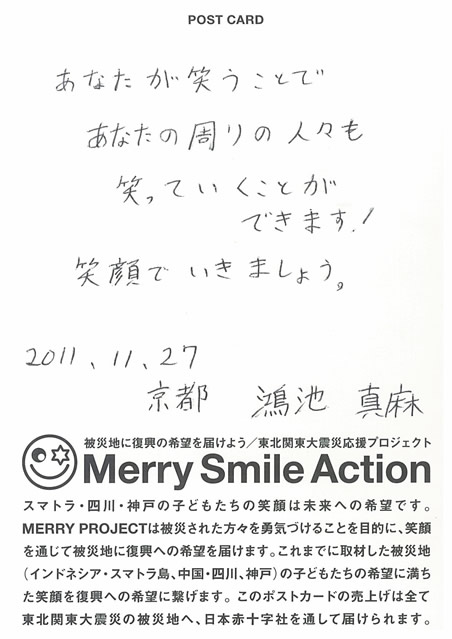 POST CARD
あなたが笑うことで
あなたの周りの人々も
笑っていくことが
できます!
笑顔でいきましょう。
2011.11.27
京都 鴻池 真麻
被災地に復興の希望を届けよう/東北関東大震災応援プロジェクト
Merry Smile Action
スマトラ・四川・神戸の子どもたちの笑顔は未来への希望です。
MERRY PROJECTは被災された方々を勇気づけることを目的に、笑顔
を通じて被災地に復興への希望を届けます。これまでに取材した被災地
(インドネシア・スマトラ島、中国・四川、神戸)の子どもたちの希望に満ち
た笑顔を復興への希望に繋げます。このポストカードの売上げは全て
東北関東大震災の被災地へ、日本赤十字社を通して届けられます。